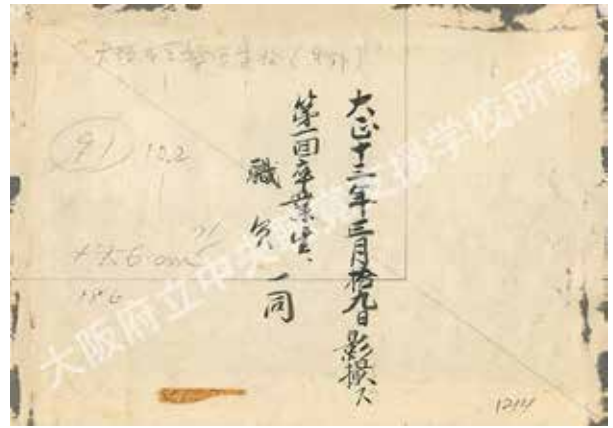 大正十三年三月拾九日影撮ス
第一回卒業生、
職員一同
91
12.2
1214
大阪府立中央聴覚支援学校所蔵